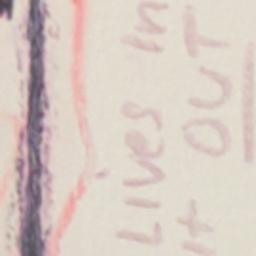 LIVES In
it OUT